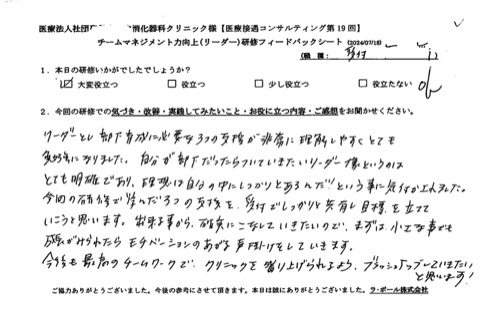 医療法人社団 消化器科クリニック様【医療接遇コンサルティング第19回】
チームマネジメント力向上(リーダー)研修フィードバックシート (2024/07/18)
(職種: 受付 )
1．本日の研修いかがでしたでしょうか？
☑ 大変役立つ □ 役立つ □ 少し役立つ □ 役立たない
2．今回の研修での気づき・改善・実践してみたいこと・お役に立つ内容・ご感想をお聞かせください。
リーダーとし 部下育成に必要な3つの支援が非常に理解しやすくとても
勉強になりました。自分が部下だったらついていきたいリーダー像というのは
とても明確であり、理想は自分の中にしっかりとあるんだ!という事に気付かされました。
今回の研修で学んだ3つの支援を、受付でしっかりと共有し目標を立てて
いこうと思います。出来る事から、確実にこなしていきたいので、まずは小さな事でも
成長がみられたらモチベーションのあがる声掛けをしていきます。
今後も最高のチームワークで、クリニックを盛り上げられるよう、ブラッシュアップしていきたい
と思います!
ご協力ありがとうございました。今後の参考にさせて頂きます。本日は誠にありがとうございました。ラ・ポール株式会社